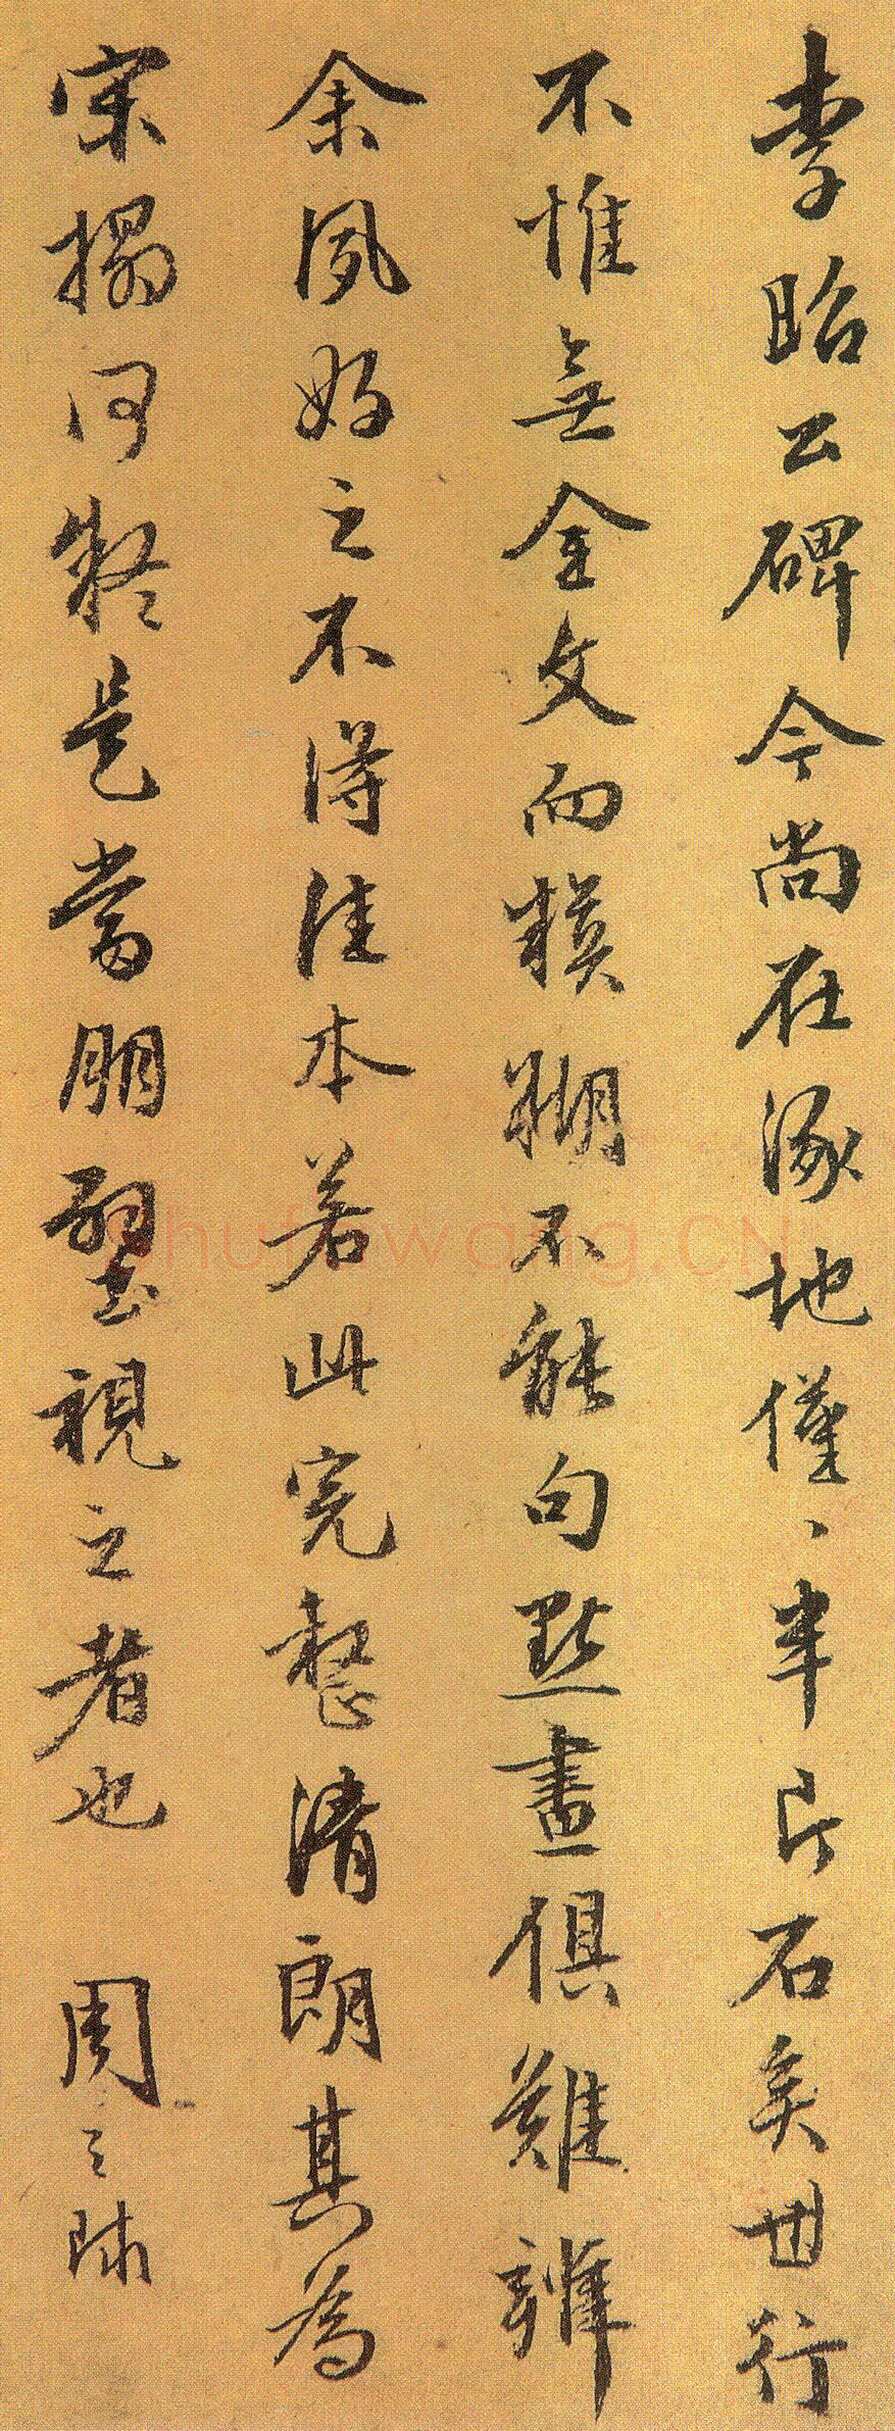 李昭公碑今尚在涿地僅、半片石矣世行
不惟無全文而模糊不能句點畫俱難辨
余夙好之不得佳本若此完整清朗其為
宋搨何疑是當朋璧視之者也 周之球
shufawang.CN